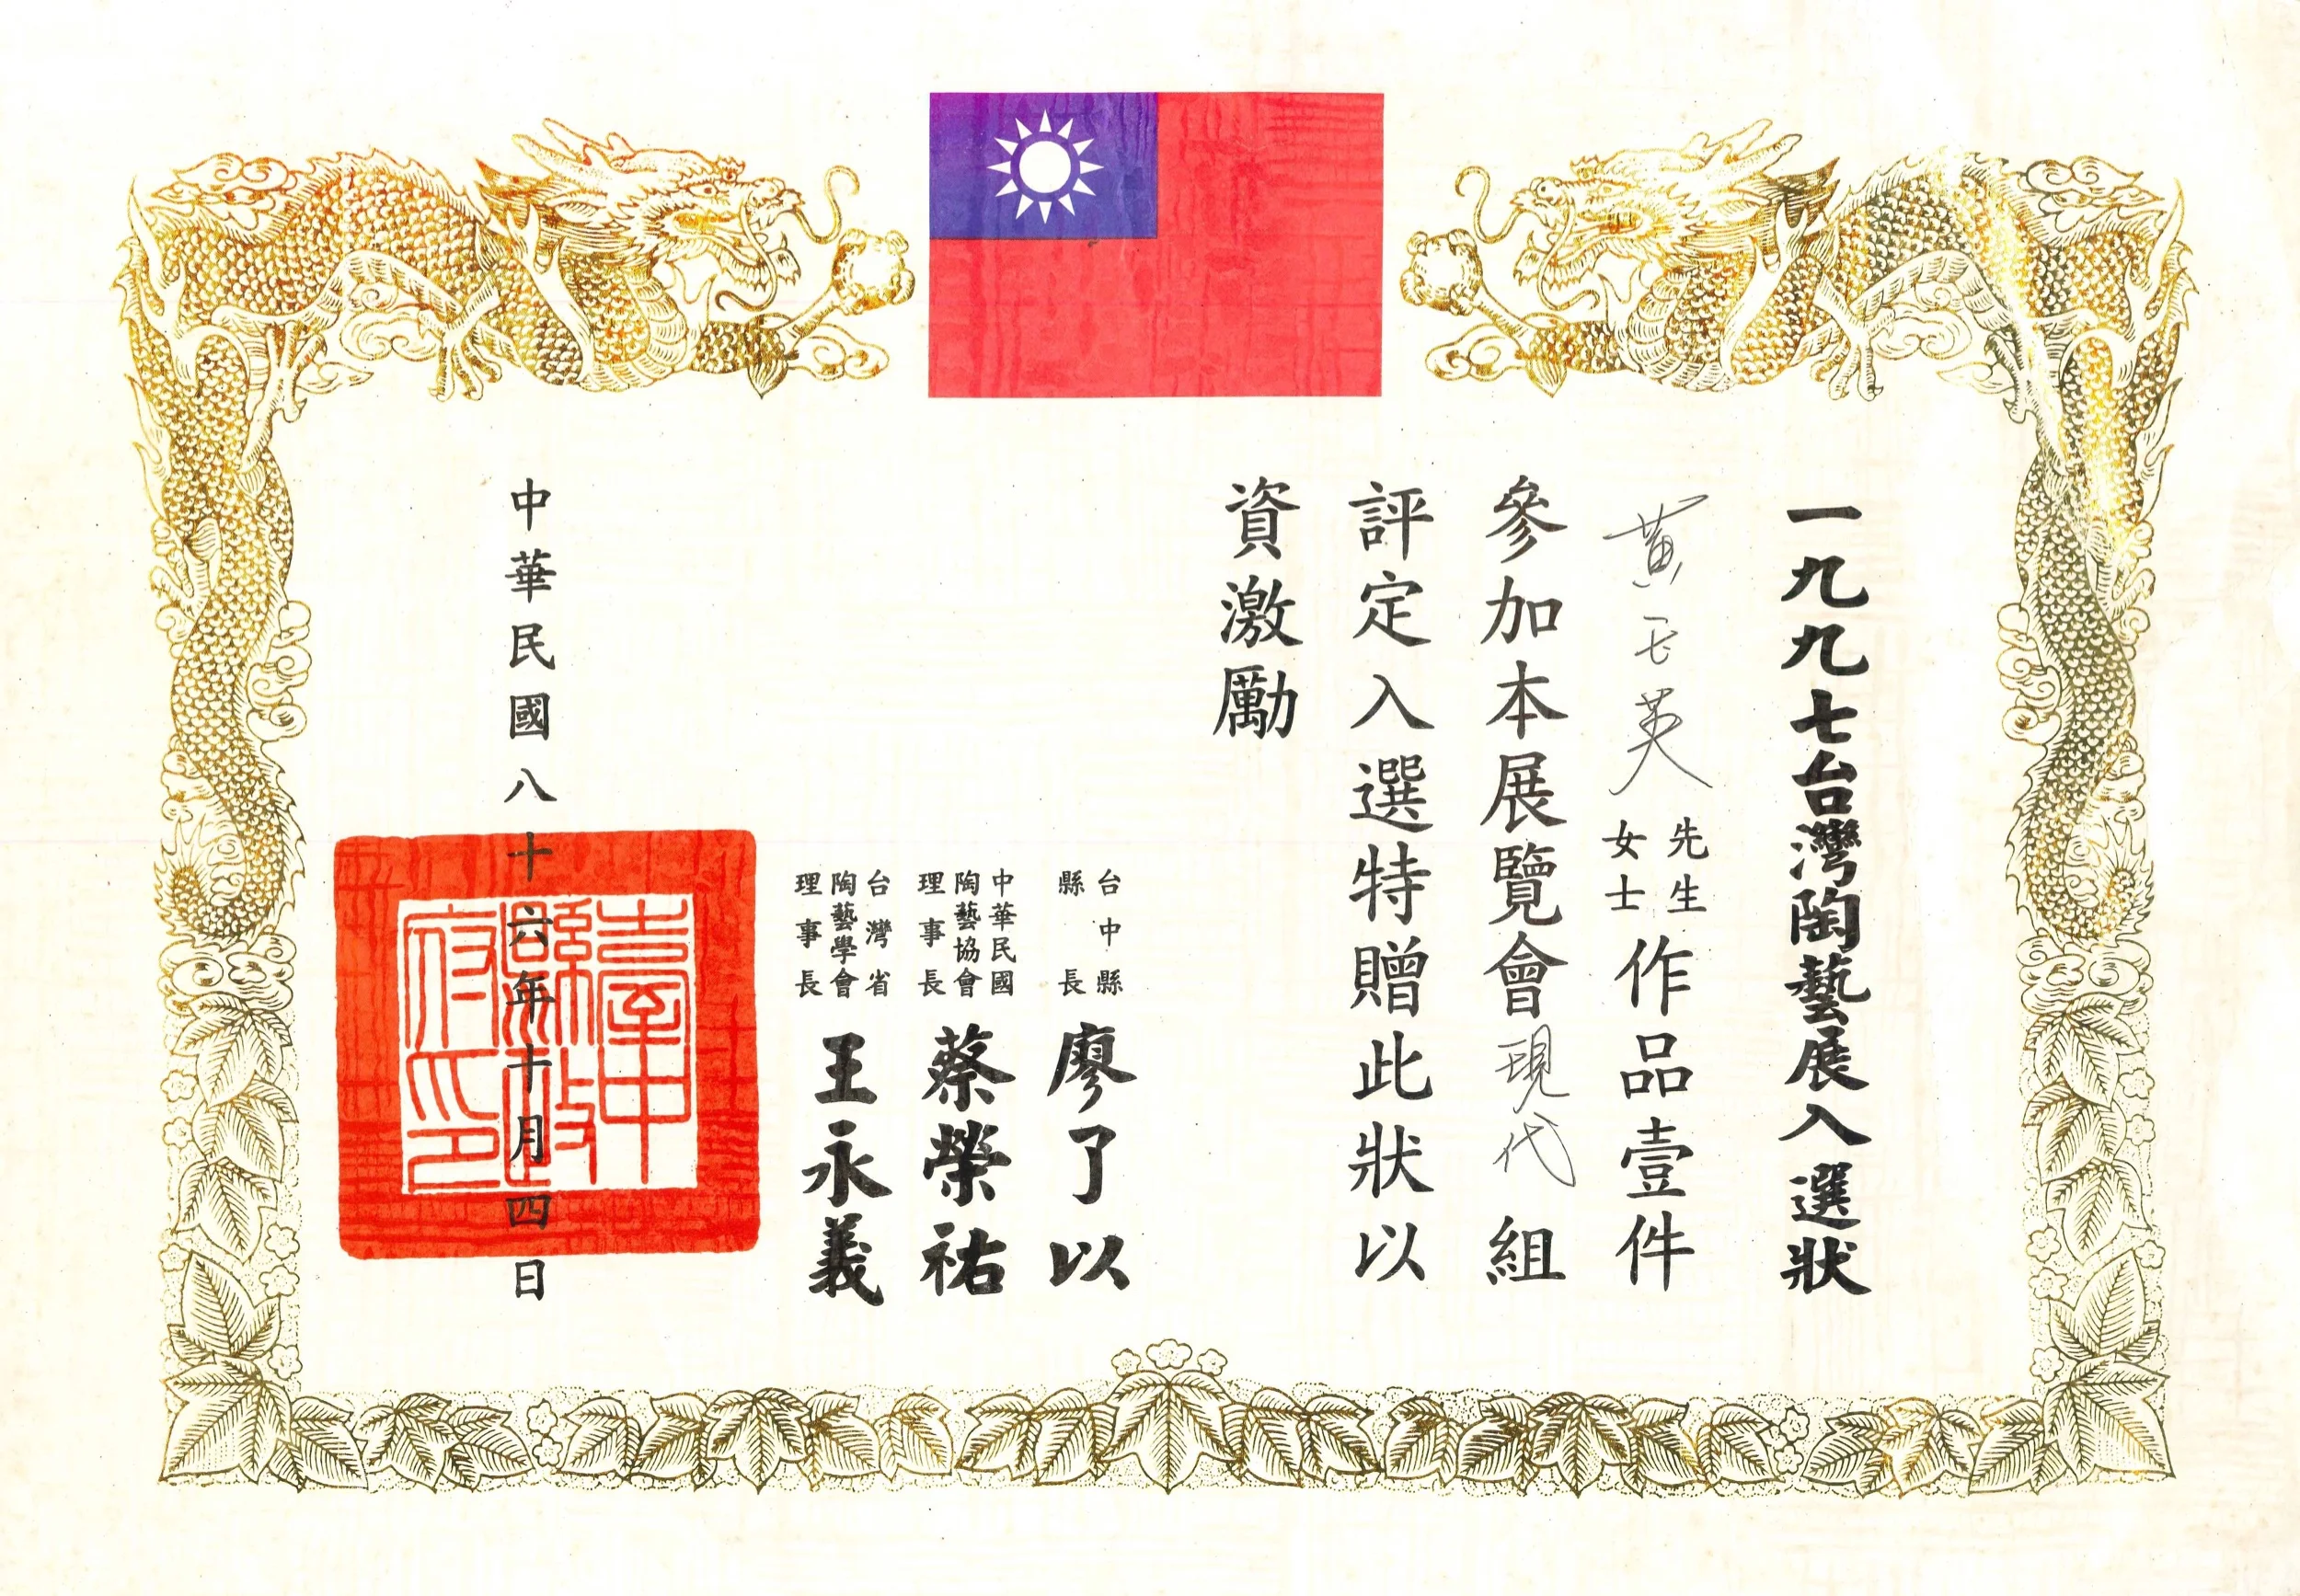 一九九七台灣陶藝展入選狀
黃 英 先生 女士 作品壹件
參加本展覽會現代組
評定入選特贈此狀以
資激勵
台中縣
縣長
廖了以
中華民國
陶藝協會
理事長
蔡榮祐
台灣省
陶藝學會
理事長
王永義
中華民國八十六年十月四日
臺中
縣政
府印